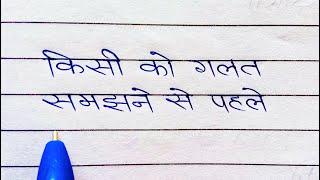 किसी को गलत
समझने से पहले